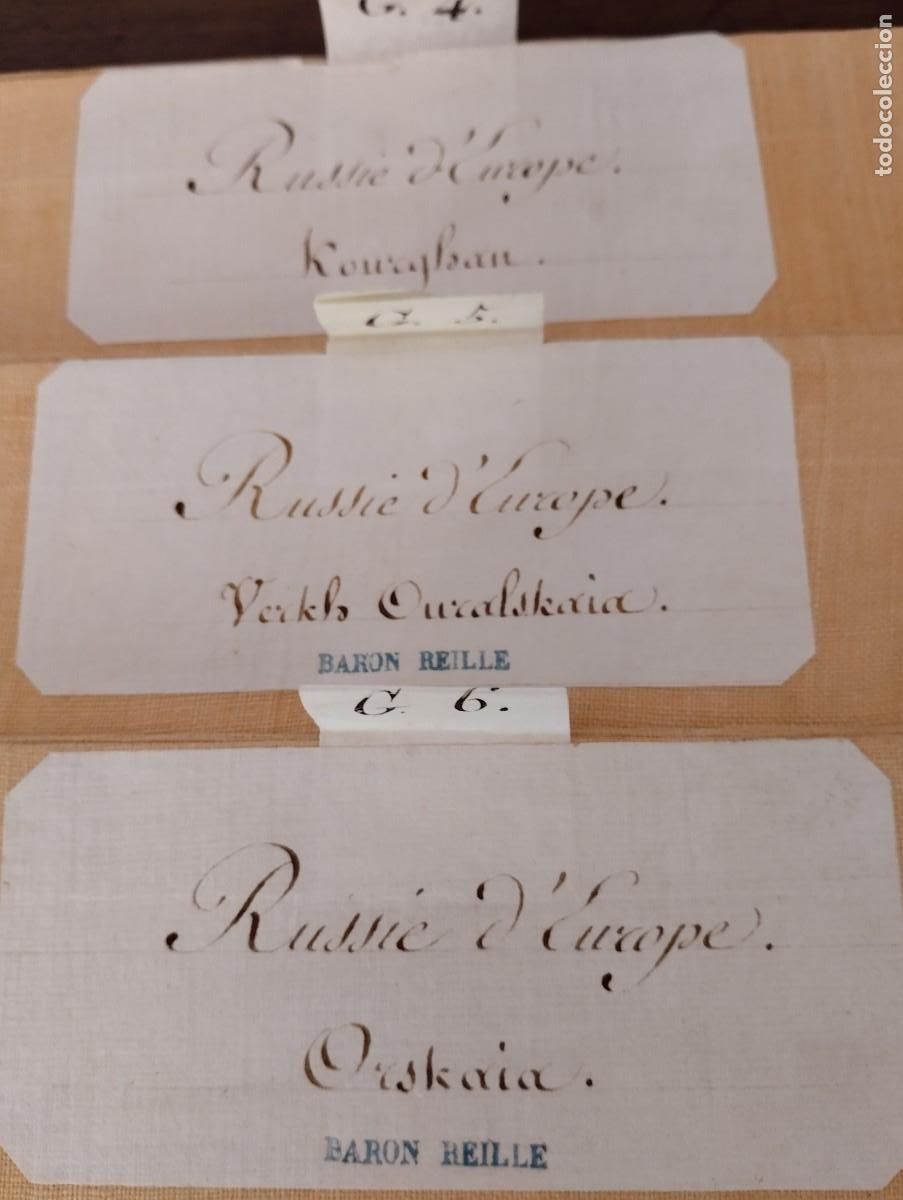 G. 4.
Russie d'Europe.
Kourghan.
G. 5.
Russie d'Europe.
Verkh Ouralskaia.
BARON REILLE
G. 6.
Russie d'Europe.
Orskaia.
BARON REILLE
todocoleccion